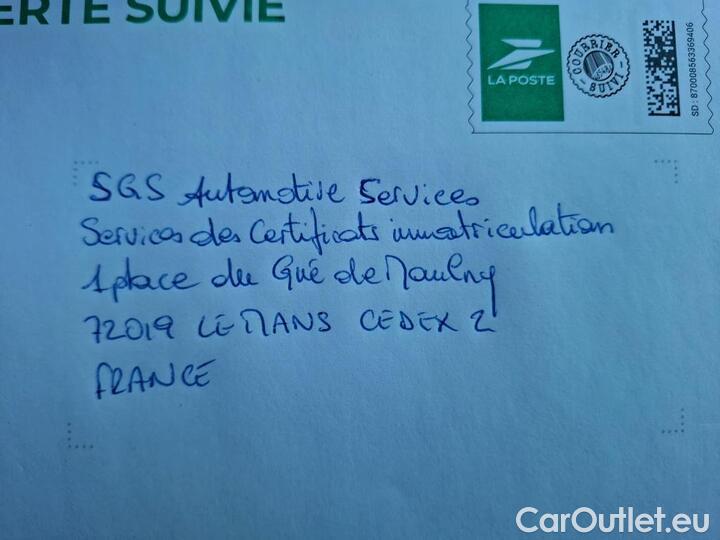 ERTE SUIVIE
LA POSTE
COURRIER SUIVI
SD : 870008563369406
SGS Automotive Services
Services des Certificats immatriculation
1 place du Gué de Maulny
72019 LE MANS CEDEX 2
FRANCE
CarOutlet.eu